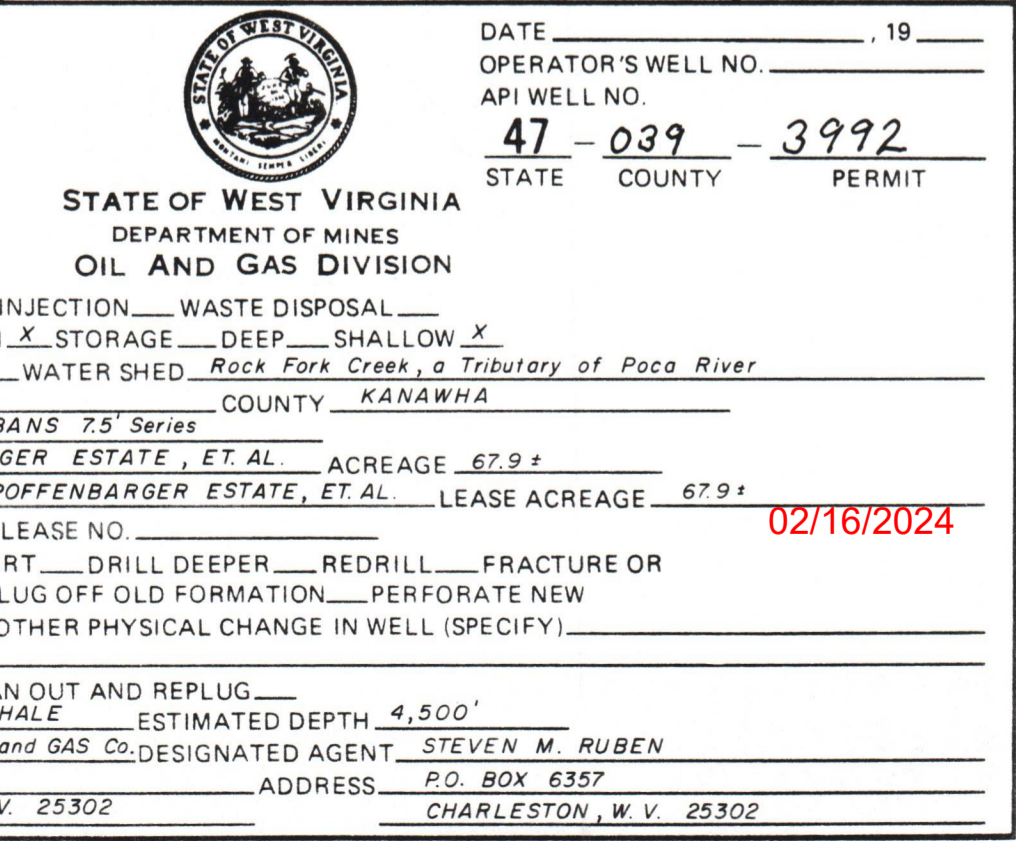 STATE OF WEST VIRGINIA
MONTANI SEMPER LIBERI
DATE ________ , 19 ____
OPERATOR'S WELL NO. ________
API WELL NO.
47 - 039 - 3992
STATE COUNTY PERMIT
STATE OF WEST VIRGINIA
DEPARTMENT OF MINES
OIL AND GAS DIVISION
INJECTION___ WASTE DISPOSAL___
X STORAGE___ DEEP___ SHALLOW X
WATER SHED Rock Fork Creek, a Tributary of Poca River
COUNTY KANAWHA
BANS 7.5' Series
GER ESTATE, ET. AL. ACREAGE 67.9 ±
POFFENBARGER ESTATE, ET. AL. LEASE ACREAGE 67.9 ±
02/16/2024
LEASE NO. ________
RT___ DRILL DEEPER___ REDRILL___ FRACTURE OR
LUG OFF OLD FORMATION___ PERFORATE NEW
OTHER PHYSICAL CHANGE IN WELL (SPECIFY)________
AN OUT AND REPLUG___
HALE ESTIMATED DEPTH 4,500'
and GAS Co. DESIGNATED AGENT STEVEN M. RUBEN
ADDRESS P.O. BOX 6357
V. 25302 CHARLESTON, W. V. 25302